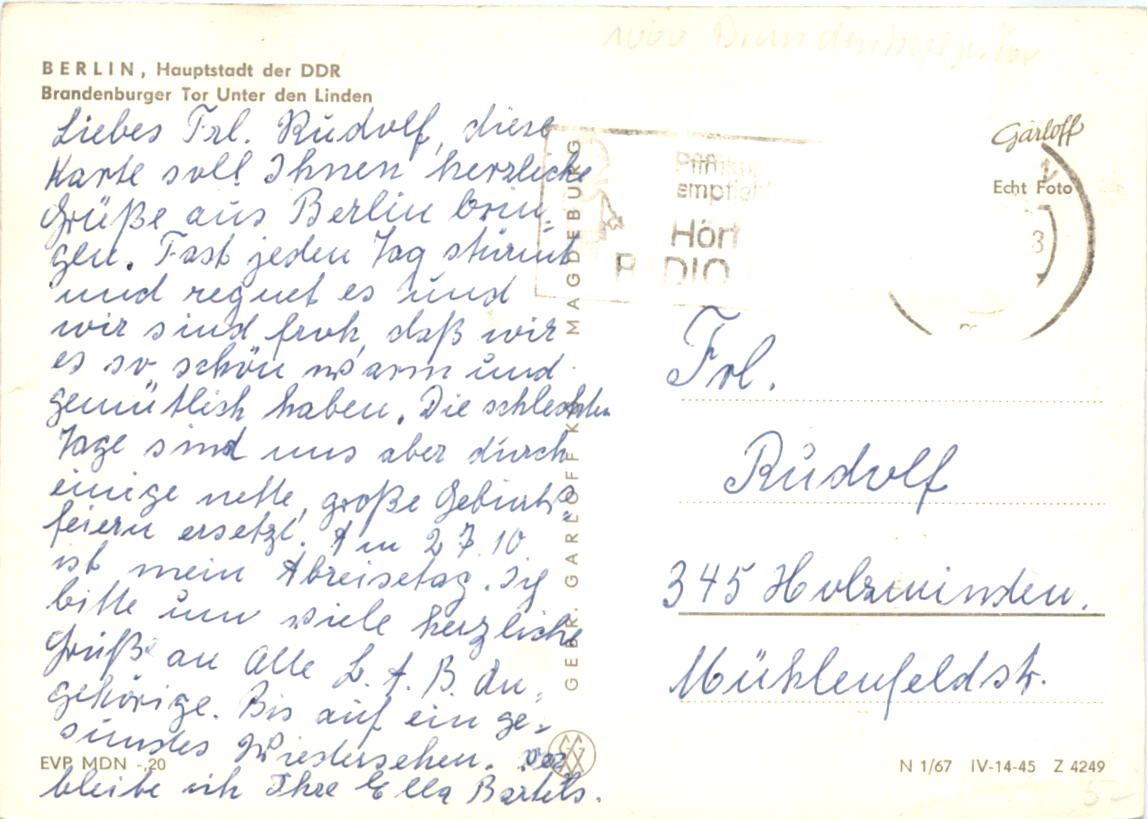 1000 Brandenburger Tor
BERLIN, Hauptstadt der DDR
Brandenburger Tor Unter den Linden
Liebes Frl. Rudolf, diese
Karte soll Ihnen herzliche
Grüße aus Berlin brin-
gen. Fast jeden Tag stürmt
und regnet es und
wir sind froh, daß wir
es so schön warm und
gemütlich haben. Die schlechten
Tage sind uns aber durch
einige nette, große Geburts-
feiern ersetzt. Am 27.10.
ist mein Abreisetag. Ich
bitte um viele herzliche
Grüße an Alle L. A. B. An-
gehörige. Bis auf ein ge-
sundes Wiedersehen. ver
bleibe ich Ihre Ella Bartels.
EVP MDN -,20
GEBR. GARLOFF KG · MAGDEBURG
Garloff
Echt Foto
empfiehlt
Hört
RADIO
Frl.
Rudolf
345 Holzminden.
Mühlenfeldstr.
N 1/67 IV-14-45 Z 4249
5-